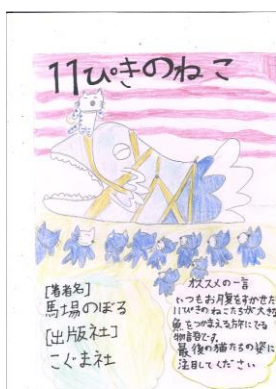 11ぴきのねこ
[著者名]
馬場のぼる
[出版社]
こぐま社
オススメの一言
いつもお月夏をすかせた
11ぴきのねこたちが大きな
魚をつかまえる旅にでる
物語です。
最後の猫たちの姿に
注目してください